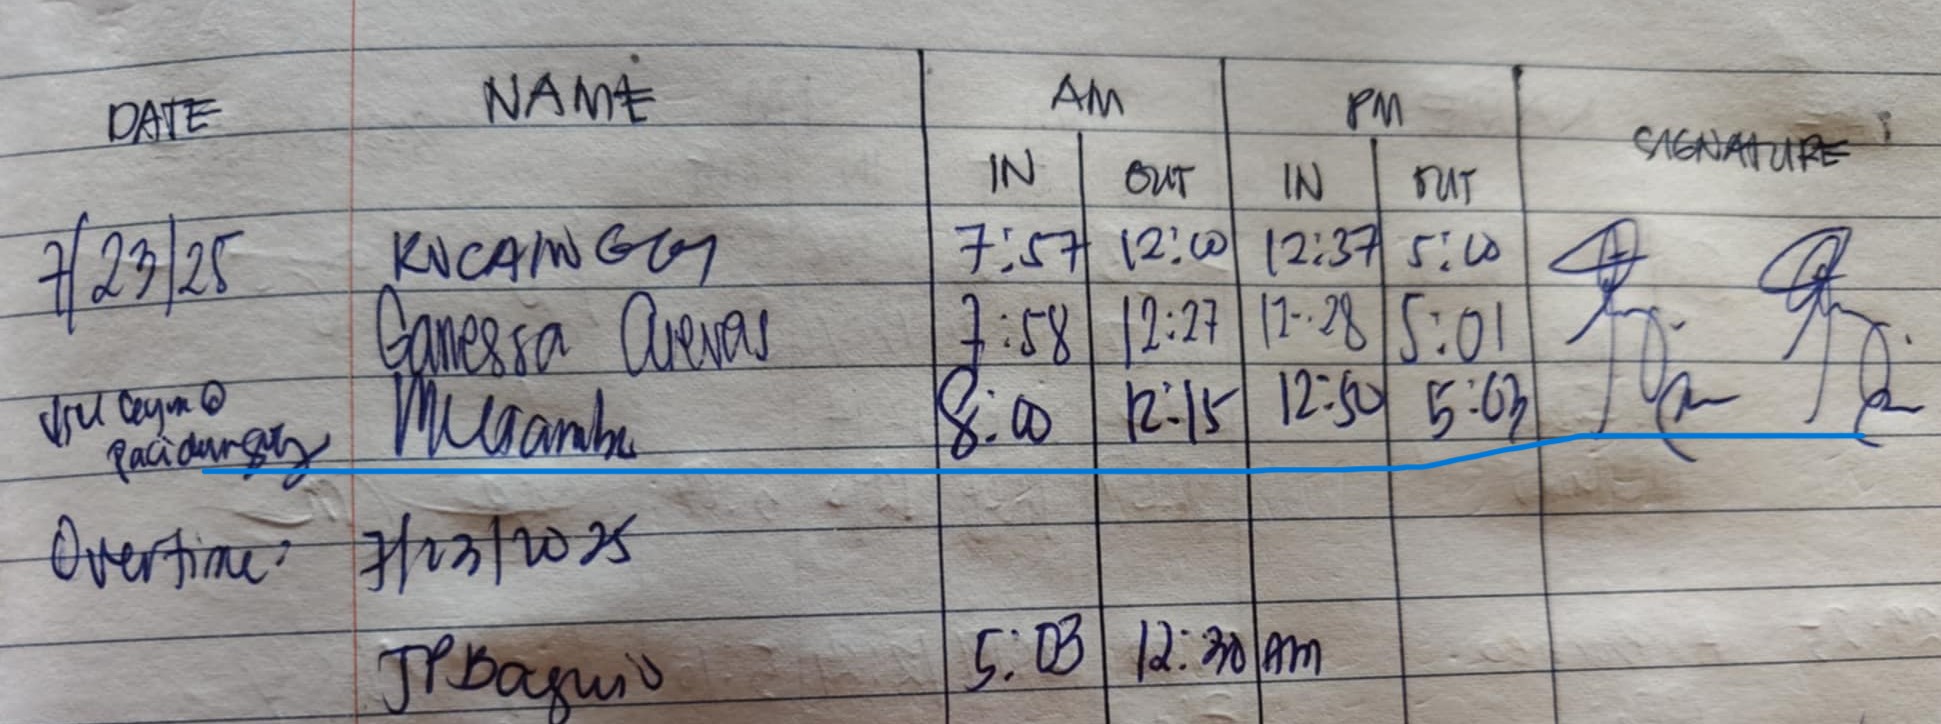 DATE NAME AM PM SIGNATURE
IN OUT IN OUT
7/23/25 7:57 12:00 12:37 5:00
Ganessa 7:58 12:27 12:28 5:01
8:00 12:15 12:50 5:03
Overtime: 7/23/2025
JPBaguio 5:03 12:30 AM